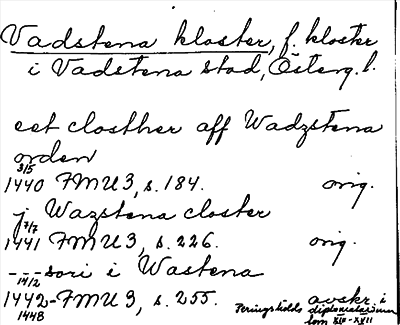 Vadstena kloster, f. kloster
i Vadstena stad, Österg. l.
eet closther aff Wadzstena
orden
3/5
1440 FMU 3, s. 184. orig.
j Wazstena closter
7/7
1441 FMU 3, s. 226. orig.
---sori i Wastena
14/2
1442-FMU 3, s. 255. avskr. i
1448 Peringskiölds diplomatarium
tom XIX-XXII